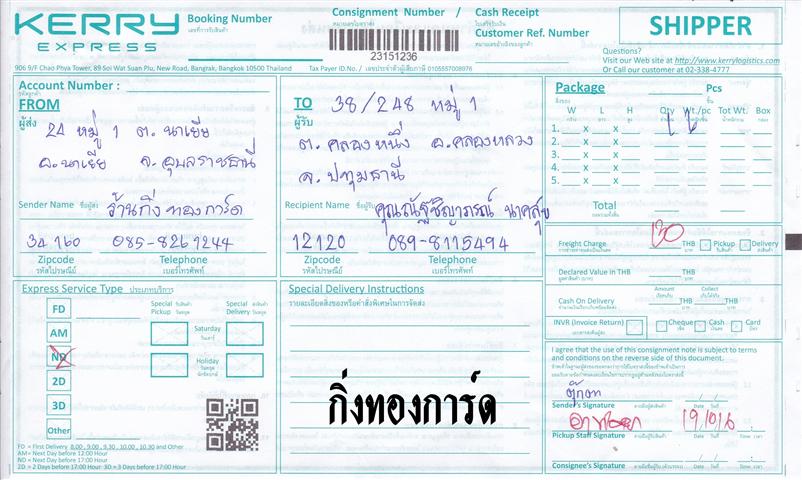 KERRY
EXPRESS
Booking Number
เลขที่การรับสินค้า
Consignment Number /
หมายเลขใบตราส่ง
23151236
Cash Receipt
ใบเสร็จรับเงิน
Customer Ref. Number
หมายเลขอ้างอิงของลูกค้า
SHIPPER
Questions?
Visit our Web site at http://www.kerrylogistics.com
Or Call our customer at 02-338-4777
906 9/F Chao Phya Tower, 89 Soi Wat Suan Plu, New Road, Bangrak, Bangkok 10500 Thailand
Tax Payer ID.No. / เลขประจำตัวผู้เสียภาษี 0105557008976
Account Number :
รหัสลูกค้า
FROM
ผู้ส่ง
24 หมู่ 1 ต. นาเยีย
อ.นาเยีย จ.อุบลราชธานี
Sender Name ชื่อผู้ส่ง ร้านกิ่งทองการ์ด
34160 085-8261244
Zipcode Telephone
รหัสไปรษณีย์ เบอร์โทรศัพท์
TO
ผู้รับ
38/248 หมู่ 1
ต. คลองหนึ่ง อ.คลองหลวง
จ. ปทุมธานี
Recipient Name ชื่อผู้รับ คุณณัฐชิญาภรณ์ นาคสุข
12120 089-8115494
Zipcode Telephone
รหัสไปรษณีย์ เบอร์โทรศัพท์
Package Pcs
สิ่งของ ชิ้น
W L H Qty Wt./pc Tot Wt. Box
1. x x
2. x x
3. x x
4. x x
5. x x
Total
Freight Charge 130 THB Pickup Delivery
Declared Value in THB THB
Amount Collect
Cash On Delivery THB THB
INVR (Invoice Return) Cheque Cash Card
I agree that the use of this consignment note is subject to terms
and conditions on the reverse side of this document.
ตุ๊กตา
Sender's Signature Date วันที่ Time เวลา
19/10/6
Pickup Staff Signature Date วันที่ Time เวลา
Consignee's Signature Date วันที่ Time เวลา
Express Service Type ประเภทบริการ
FD
AM
ND
2D
3D
Other
Special Pickup วันรับสินค้า
Special Delivery วันส่งสินค้า
Saturday
วันเสาร์
Holiday
วันหยุด
นักขัตฤกษ์
FD = First Delivery 8.00 , 9.00 , 9.30 , 10.00 , 10.30 and Other
AM= Next Day before 12:00 Hour
ND = Next Day before 17:00 Hour
2D = 2 Days before 17:00 Hour 3D = 3 Days before 17:00 Hour
Special Delivery Instructions
รายละเอียดสิ่งของหรือคำสั่งพิเศษในการจัดส่ง
กิ่งทองการ์ด